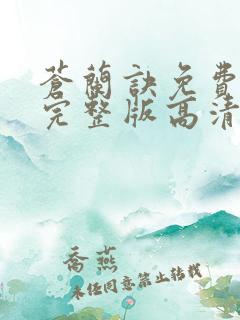 蒼蘭訣免費
完整版高清
喬燕
未經同意禁止转载